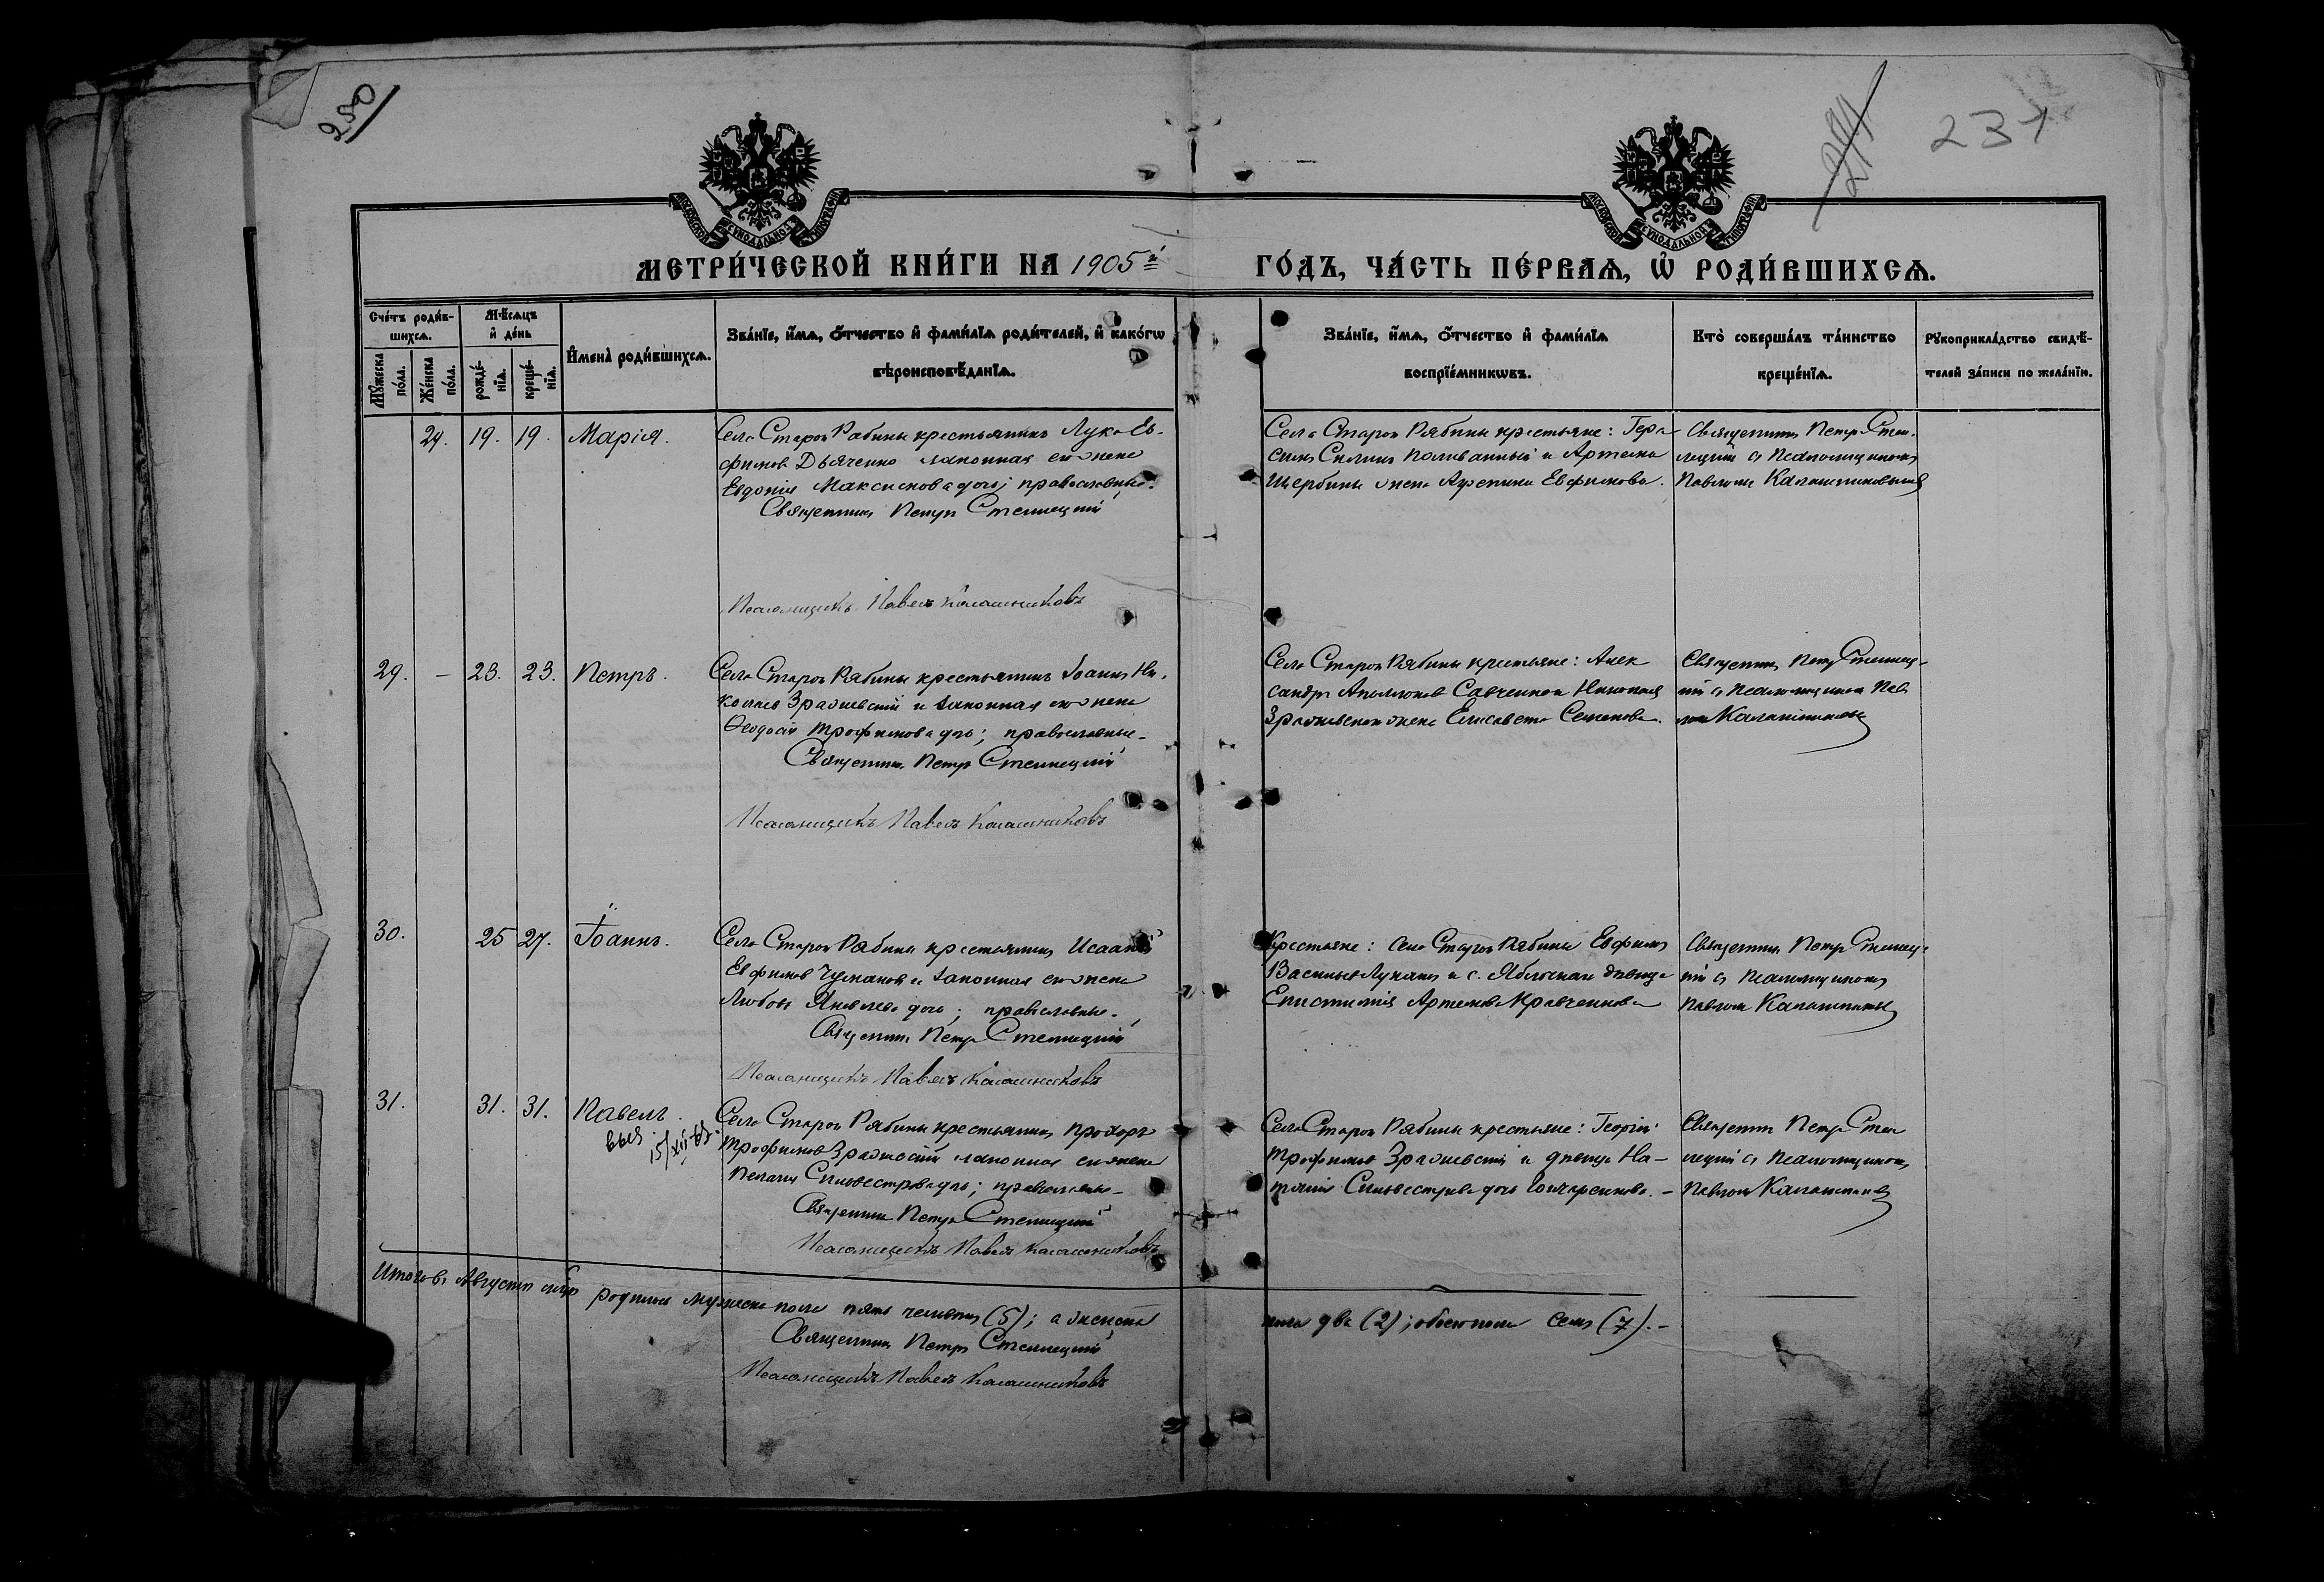 250
244
231
МЕТРИ́ЧЕСКОЙ КНИ́ГИ НА 1905й
ГО́ДЪ, ЧА́СТЬ ПЕ́РВАѦ, Ѡ҆ РОДИ́ВШИХСѦ.
Сче́тъ роди́в-
шихсѧ.
Мѣ́сѧцъ
и҆ де́нь
Мꙋ́жеска
по́ла.
Же́нска
по́ла.
рожде́-
нїѧ.
креще́-
нїѧ.
И҆мена̀ роди́вшихсѧ.
Зва́нїе, и҆́мѧ, ѻ҆́тчество и҆ фами́лїѧ роди́телей, и҆ како́гѡ
вѣроисповѣ́данїѧ.
Зва́нїе, и҆́мѧ, ѻ҆́тчество и҆ фами́лїѧ
воспрїе́мникѡвъ.
Кто̀ соверша́лъ та́инство
креще́нїѧ.
Рꙋкоприкла́дство свидѣ́-
телей за́писи по жела́нїю.
24. 19. 19. Марія.
Села Старой Рябины крестьянинъ Лука Ев-
фимовъ Дьяченко законная его жена
Евдокія Максимова дочь; православные.
Священникъ Петръ Стеллецкій
Псаломщикъ Павелъ Калашниковъ
Села Старой Рябины крестьяне: Гера-
симъ Поливанный и Артема
Щербины жена Евфимова.
Священникъ Петръ Стел-
лецкій съ псаломщикомъ
Павломъ Калашниковымъ
29. - 23. 23. Петръ.
Села Старой Рябины крестьянинъ Іоаннъ Ни-
колаевъ Зражевскій и законная его жена
Ѳеодосія Трофимова дочь; православные.
Священникъ Петръ Стеллецкій
Псаломщикъ Павелъ Калашниковъ
Села Старой Рябины крестьяне: Алек
сандръ Савченко и Николая
Зражевскаго жена Елисавета Семенова.
Священникъ Петръ Стеллец-
кій съ псаломщикомъ Пав
ломъ Калашниковымъ
30. 25 27. Іоаннъ.
Села Старой Рябины крестьянинъ Исаакій
Евфимовъ и законная его жена
Любовь Яковлева дочь; православные.
Священникъ Петръ Стеллецкій
Псаломщикъ Павелъ Калашниковъ
Крестьяне: села Старой Рябины Евфимъ
Васильевъ и с. Яблочнаго дѣвица
Епистимія Артемова Кравченкова
Священникъ Петръ Стеллец-
кій съ псаломщикомъ
Павломъ Калашниковымъ
31. 31. 31. Павелъ.
15/XII
Села Старой Рябины крестьянинъ Прохоръ
Трофимовъ Зражевскій законная его жена
Пелагія Сильвестрова дочь; православные.
Священникъ Петръ Стеллецкій
Псаломщикъ Павелъ Калашниковъ
Села Старой Рябины крестьяне: Георгій
Трофимовъ Зражевскій и дѣвица На-
талія Сильвестрова дочь Гончаренкова. -
Священникъ Петръ Стел
лецкій съ псаломщикомъ
Павломъ Калашниковымъ
Итого въ Августѣ м-цѣ родилось мужеска пола пять человѣкъ (5); а женска
пола два (2); обоего пола семь (7). -
Священникъ Петръ Стеллецкій
Псаломщикъ Павелъ Калашниковъ